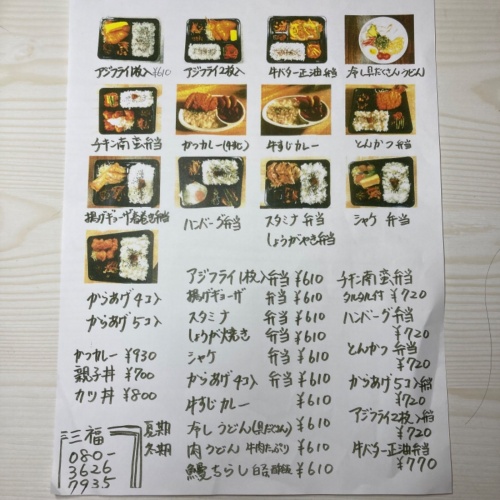 アジフライ1枚入 ¥610
アジフライ2枚入
牛バター正油弁当
冷し具だくさんうどん
チキン南蛮弁当
カツカレー
牛すじカレー
とんかつ弁当
揚げギョーザ 弁当
ハンバーグ弁当
スタミナ弁当
しょうがやき弁当
シャケ弁当
からあげ4コ入
からあげ5コ入
カツカレー ¥930
親子丼 ¥700
カツ丼 ¥800
三福
080-
3626
7935
夏期
冬期
アジフライ1枚入弁当 ¥610
揚げギョーザ 〃 ¥610
スタミナ 〃 ¥610
しょうが焼き 〃 ¥610
シャケ 〃 ¥610
からあげ4コ入 弁当 ¥610
牛すじカレー ¥610
冷しうどん(具だくさん) ¥610
肉うどん 牛肉たっぷり ¥610
鰻ちらし ¥610
チキン南蛮弁当
タルタル付 ¥720
ハンバーグ弁当
¥720
とんかつ弁当
¥720
からあげ5コ入弁当
¥720
アジフライ2枚入弁当
¥720
牛バター正油弁当
¥770